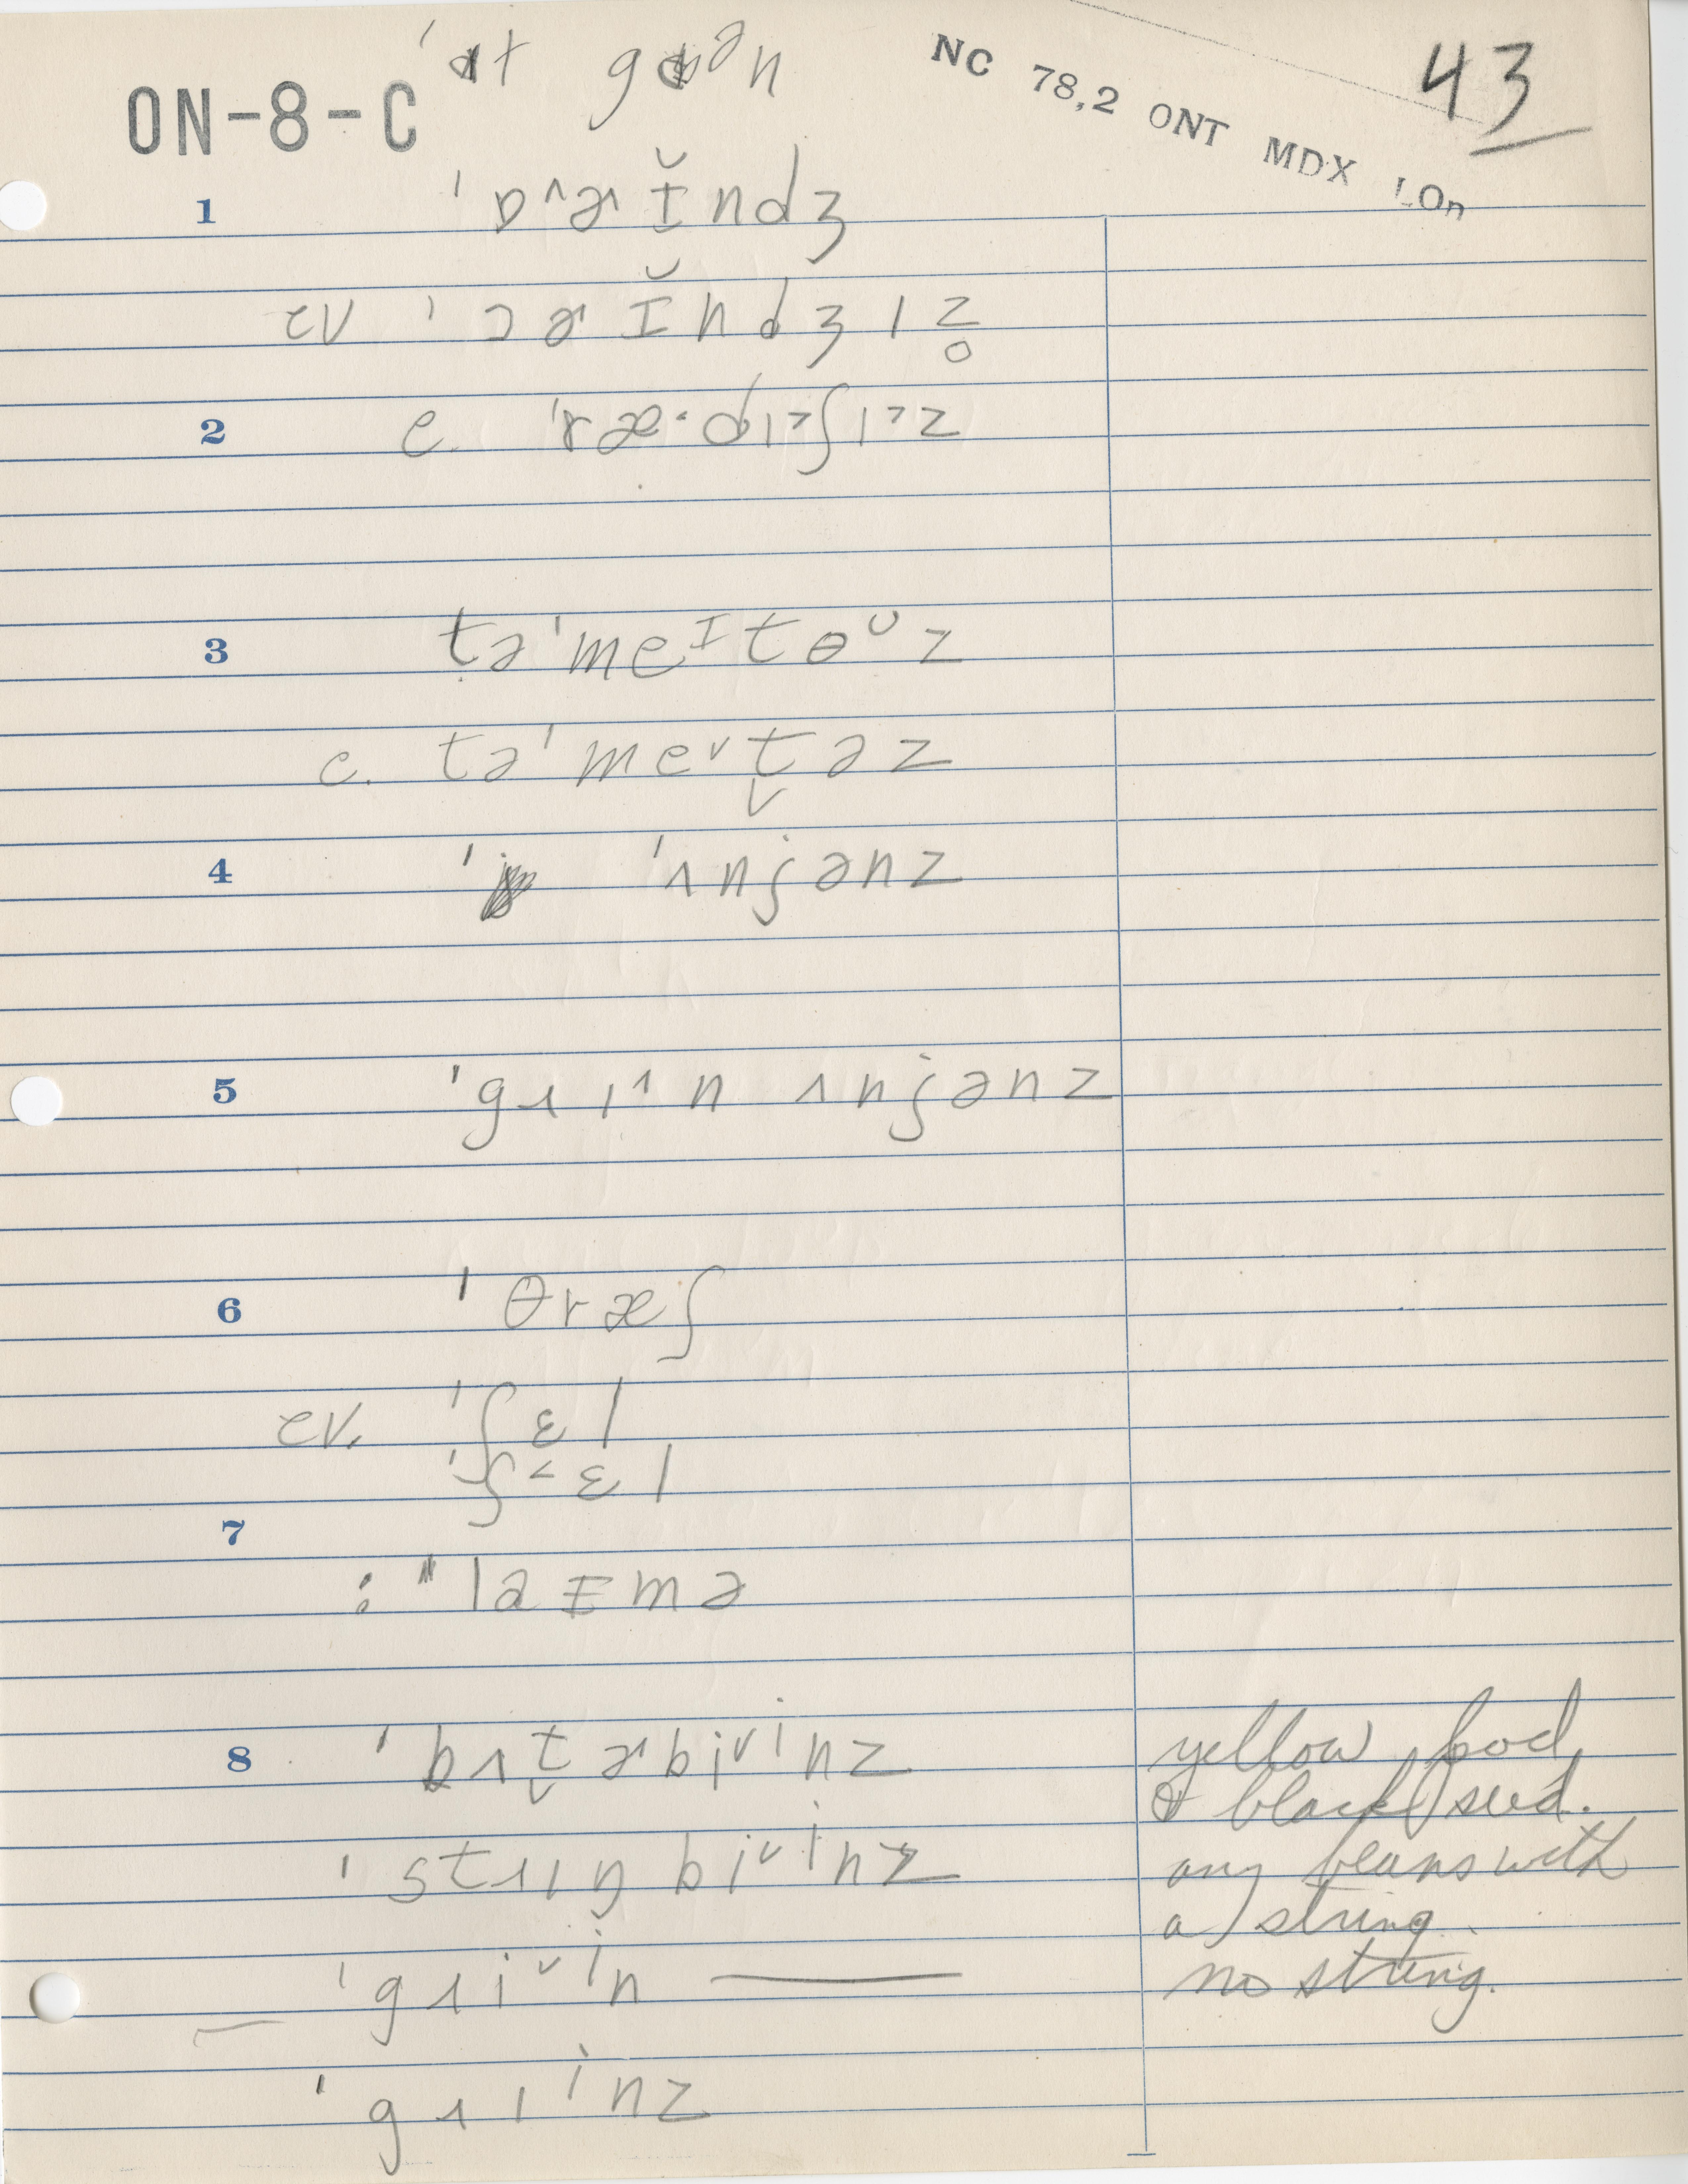 ˈɑt gɒən
ON-8-C
NC 78,2 ONT MDX LOn
43
1 ˈɒ^ɚɪ̆ndʒ
cv ˈɔɚɪ̆ndʒɪz̥
2 c. ˈræ·dɪ˃ʃɪ˃z
3 təˈmeᴵtoᶷz
c. təˈme˅t̬əz
4 ˈʌnjənz
5 ˈgɹɪˈ^n ʌnjənz
6 ˈθræʃ
cv. ˈʃɛl
ˈʃ˂ɛl
7
: "laɪmə
8 ˈbʌt̬ɚbi˅ⁱnz yellow pod
& black seed.
ˈstɹɪŋ bi˅ⁱnz any beans with
a string
ˈgɹi˅ⁱn —— no string.
ˈgɹɪⁱnz